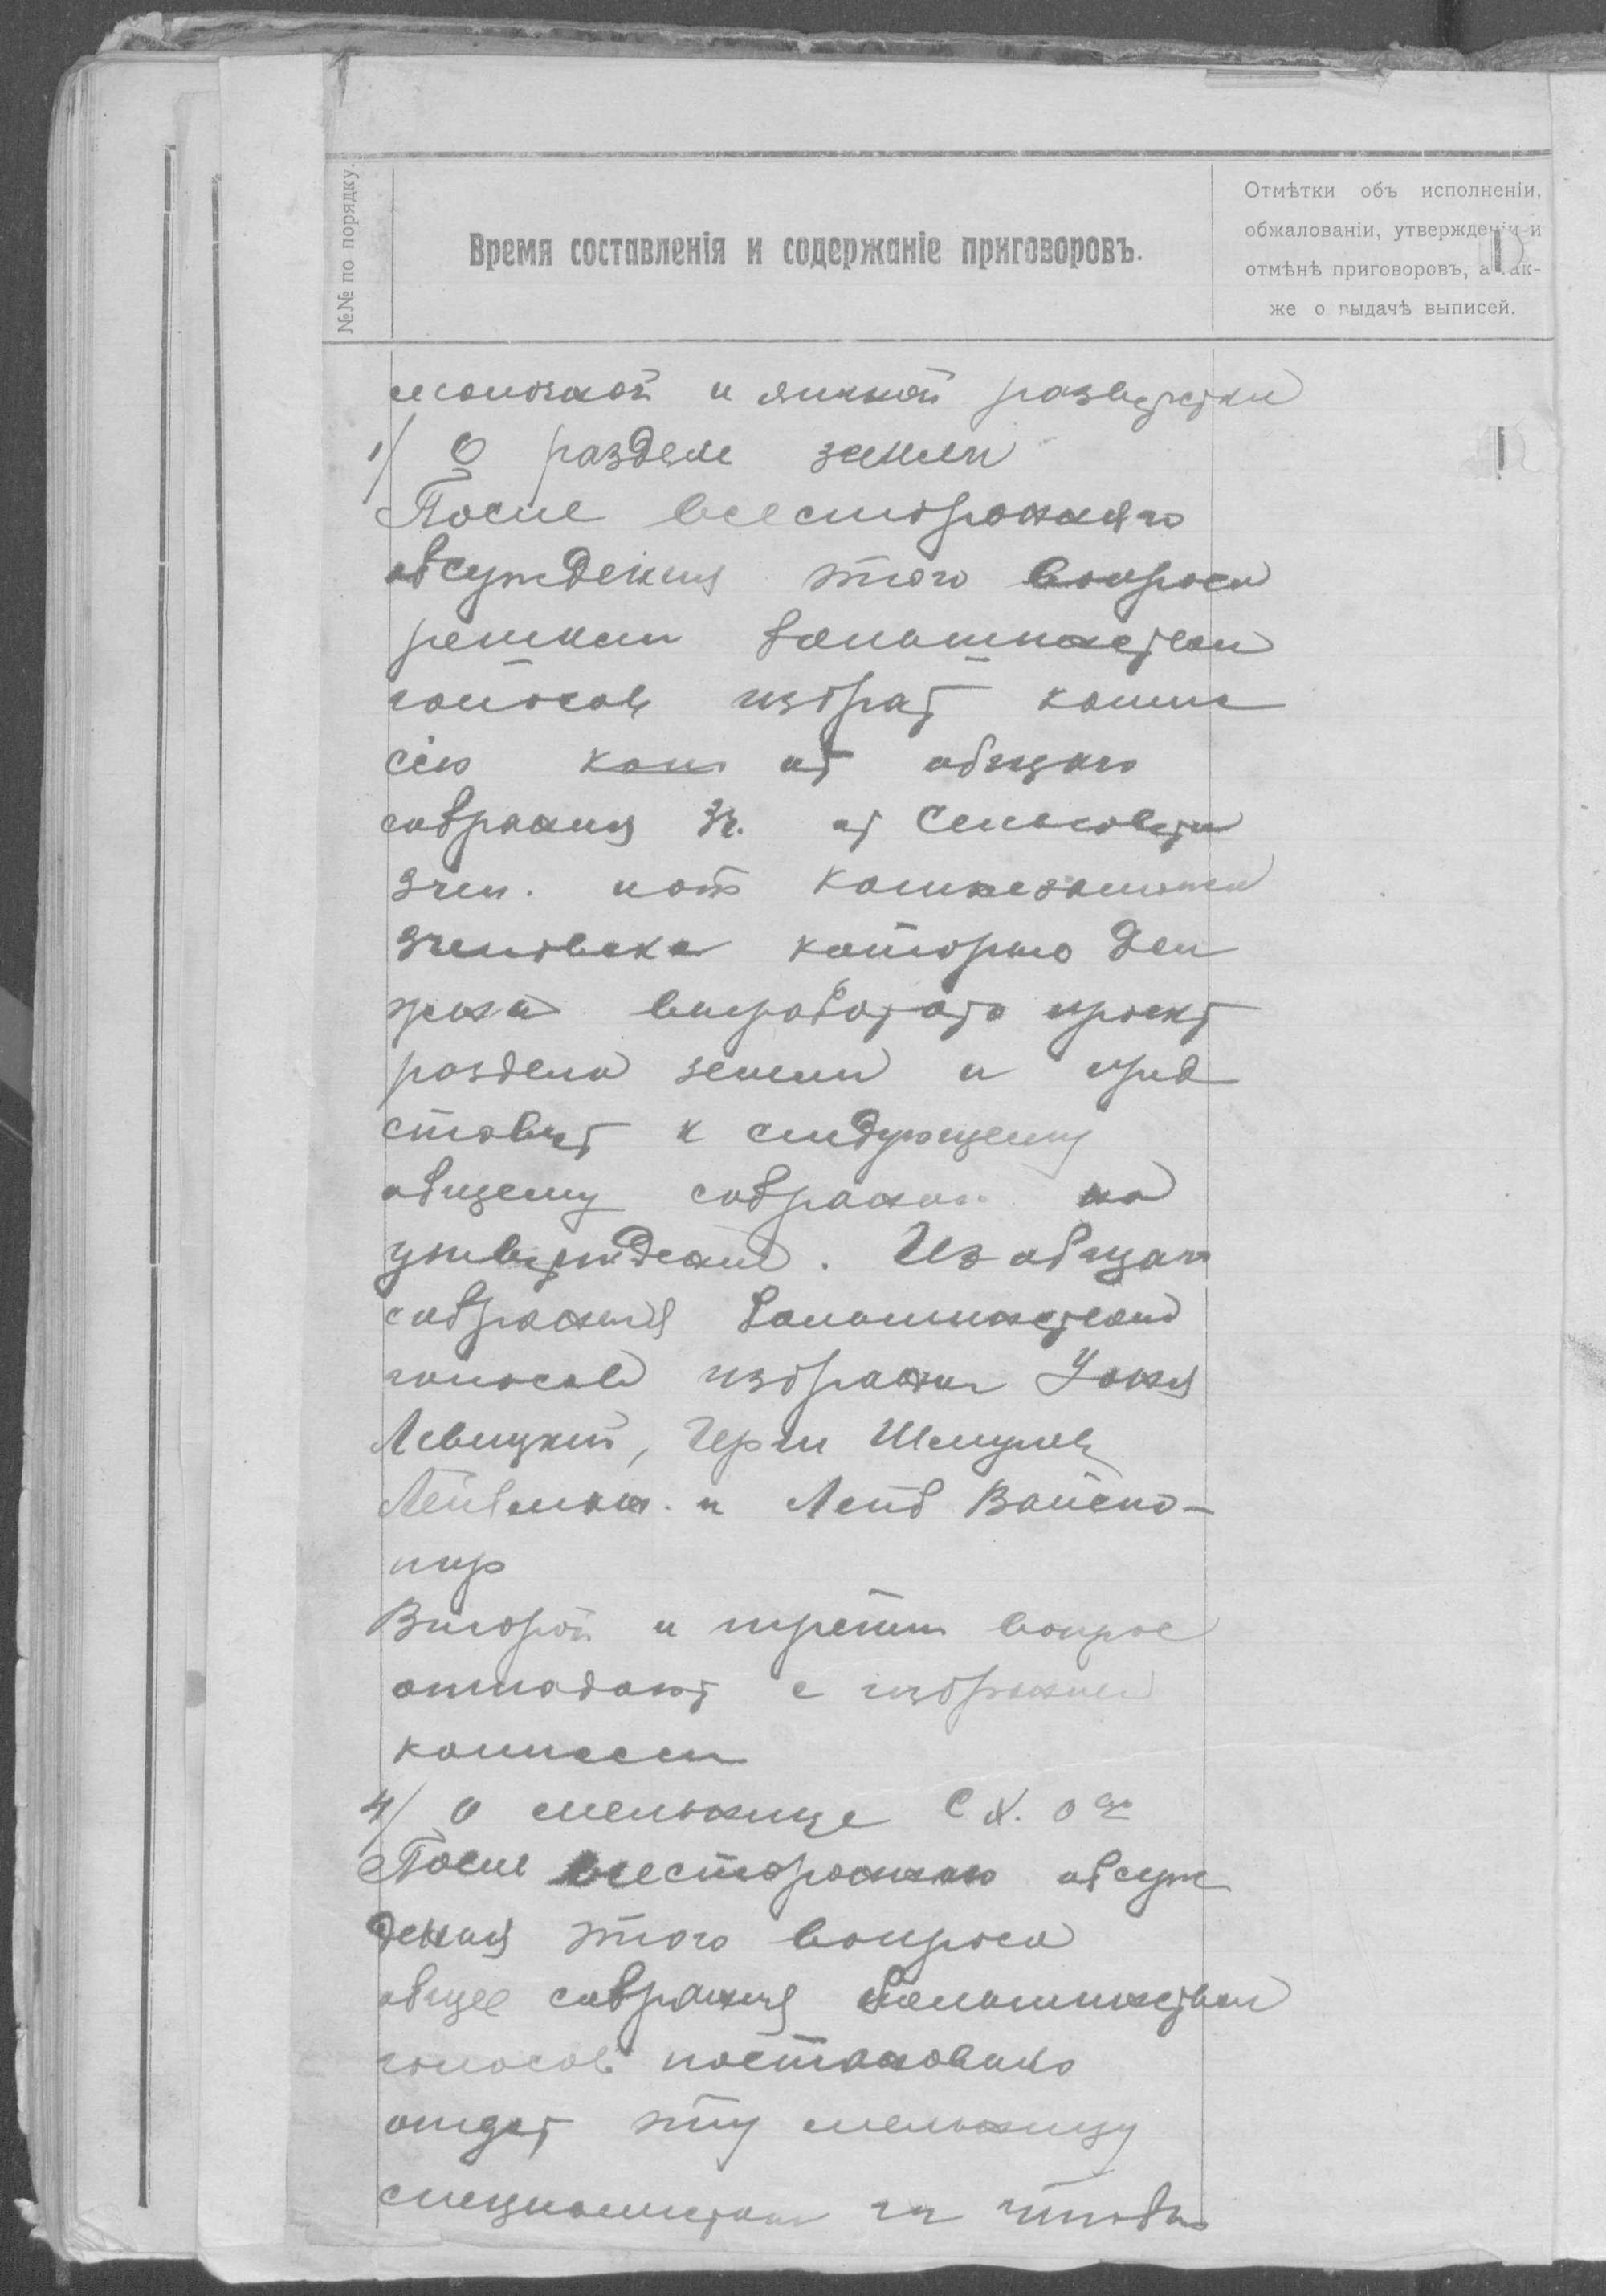 №№ по порядку.
Время составленія и содержаніе приговоровъ.
Отмѣтки объ исполненіи,
обжалованіи, утвержденіи и
отмѣнѣ приговоровъ, а так-
же о выдачѣ выписей.
молочной и яичной разверстки
1/ О разделе земли
После всестороннего
обсуждения этого вопроса
решили большинством
голосов избрат комис
сию ком от общаго
собрания 3ч. от Сельсовета
3 чел. и от Комнезаможа
3 человека которую дол
жна выработать проект
раздела земли и прид
ставит к следующему
общему собранию на
утверждение. Из общаго
собрания большинством
голосов избрали
Левицкий, Герш Шмулев
Лейб Вайсно-
пир
Второй и третий вопрос
отпадают с избранием
комиссии
4/ О мельнице С Х. О
После всестороннаго обсуж
дения этого вопроса
общее собрания большинством
голосов постановило
отдат эту мельницу
специалистам чтобы